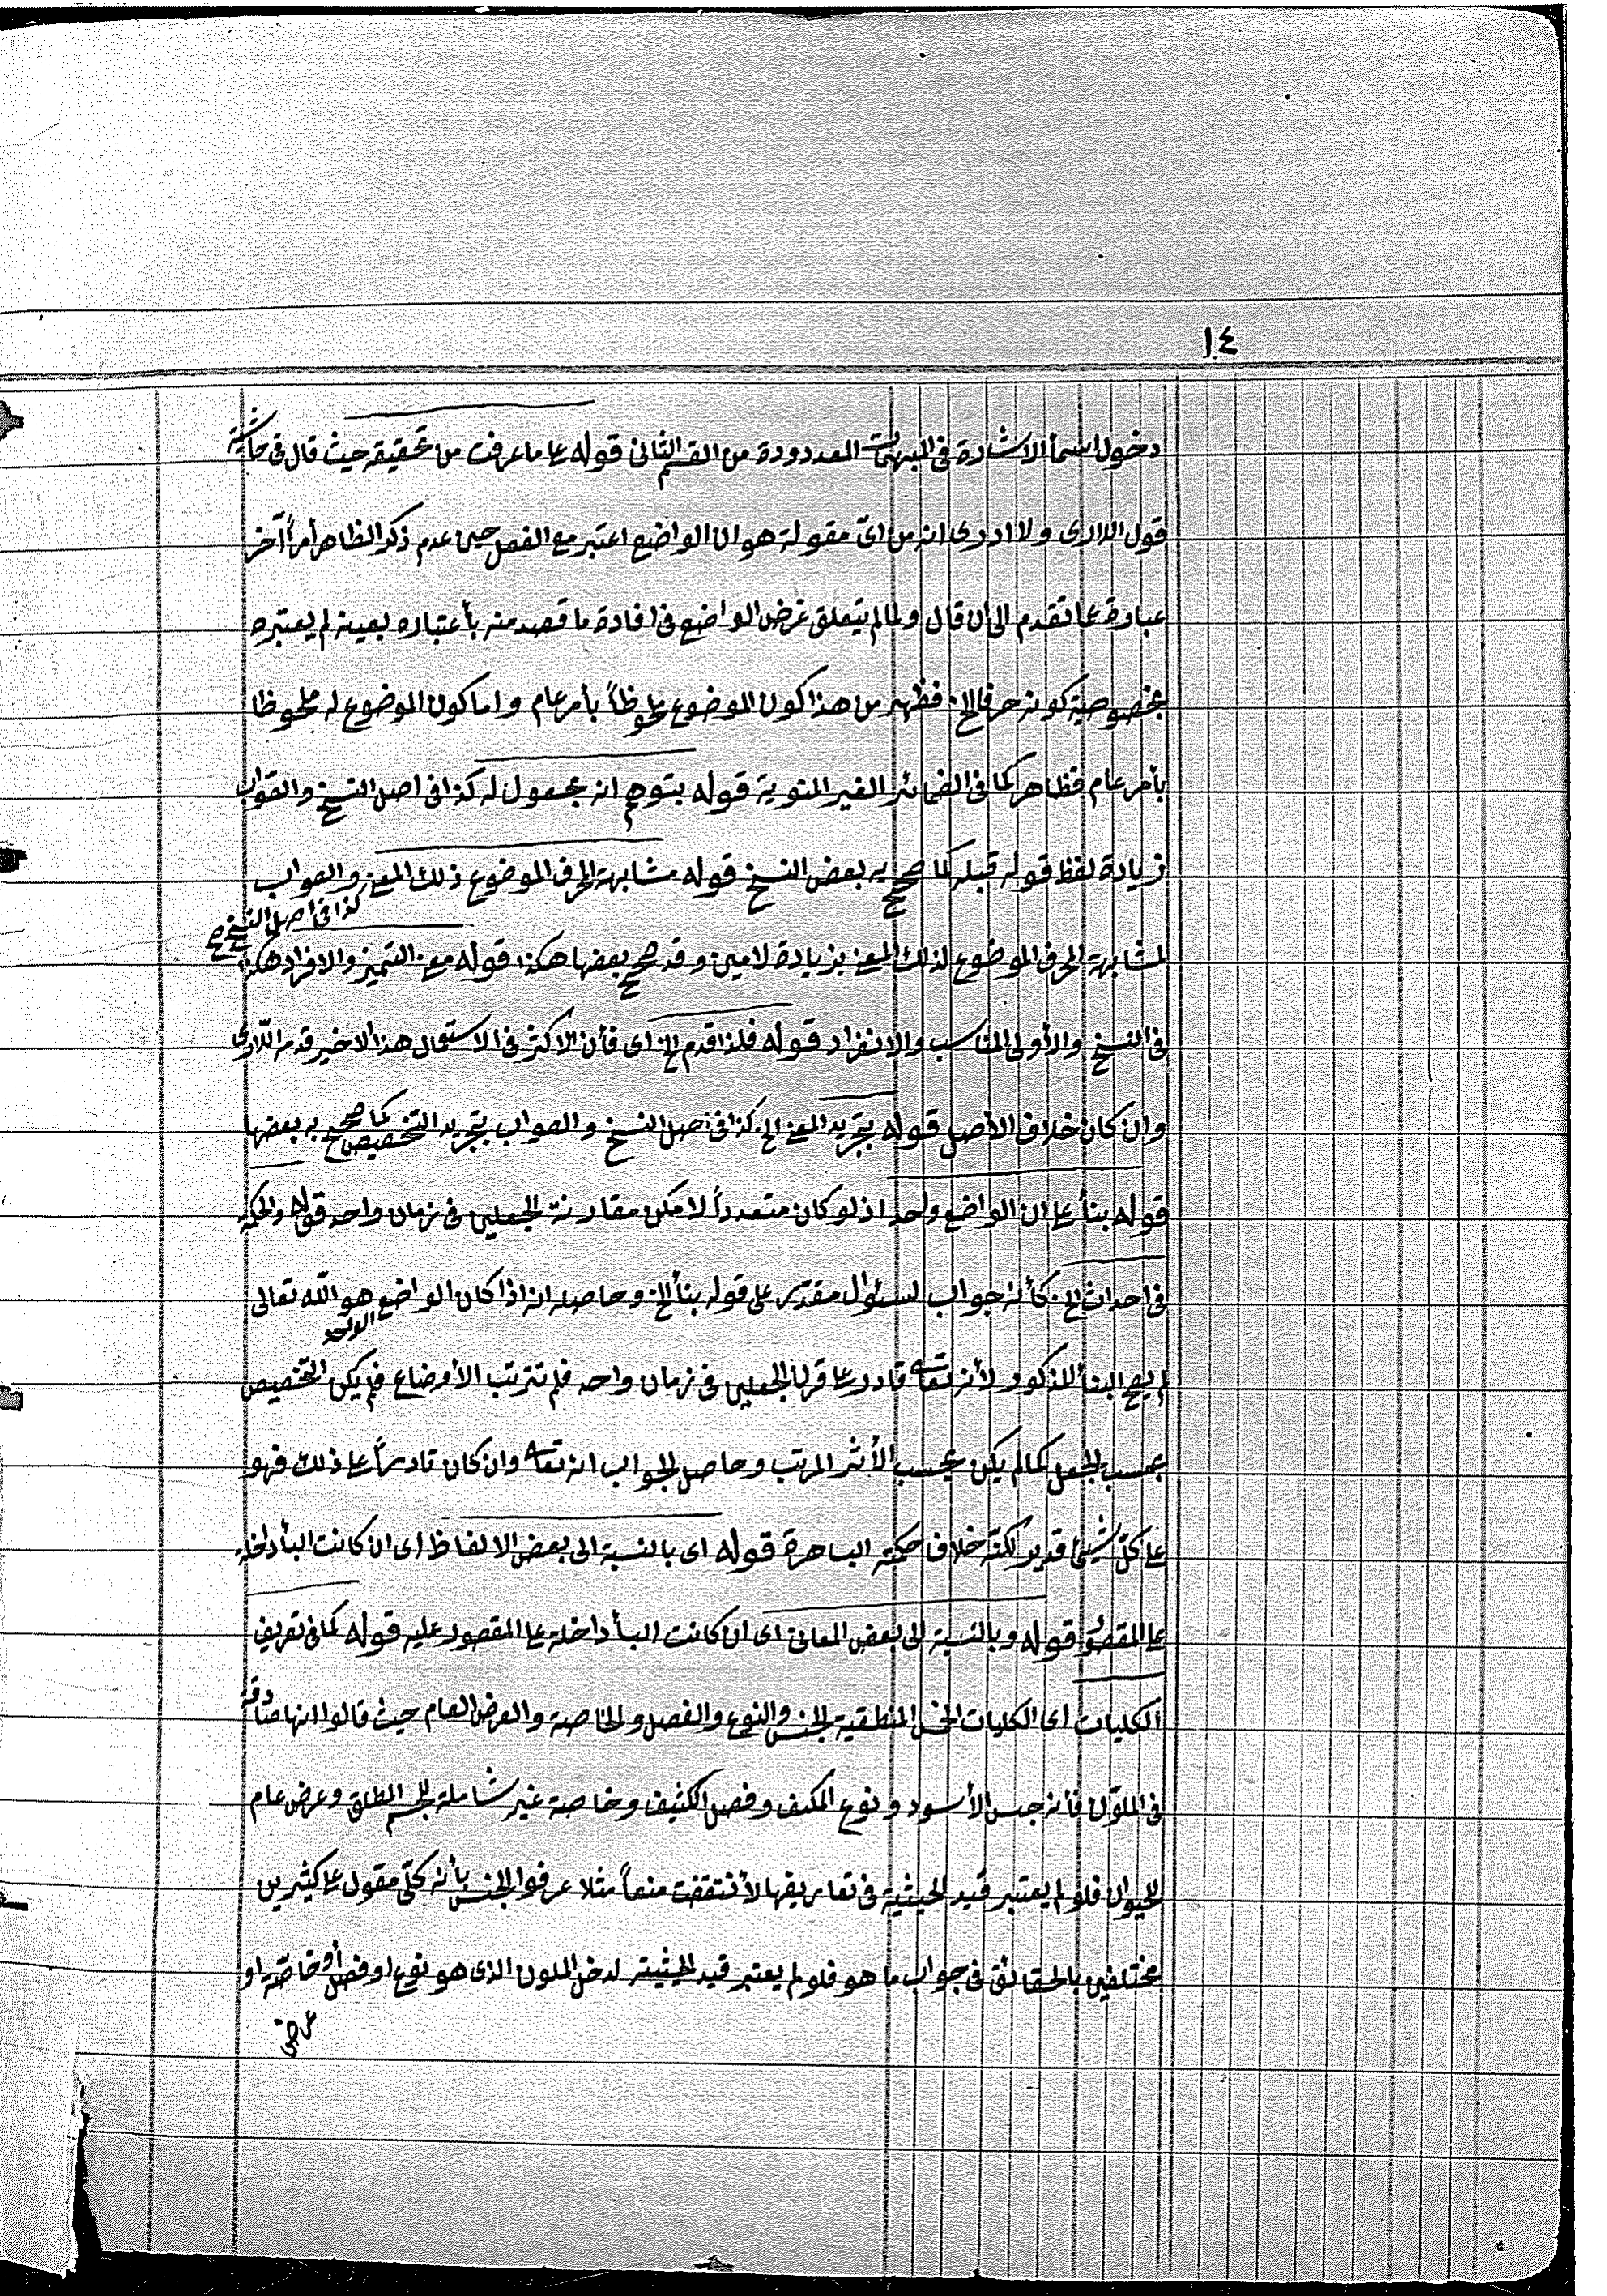 ١٤
دخول اسمأ الاشارة فى المبهمات المعدودة من القسم الثانى قوله على ما عرفت من تحقيقه حيث قال فى حاشية
قول اللارى ولا ادرى انه من اىّ مقولة هو ان الواضع اعتبر مع الفعل حين عدم ذكر الظاهر أمراً آخر
عبارة عما تقدم الى ان قال ولما لم يتعلق غرض الواضع فى افادة ما قصد منه بأعتباره بعينه لم يعتبره
بخصوصية كونه حرفا الخ فظهر من هذا كون الموضوع ملحوظاً بأمر عام واما كون الموضوع له ملحوظا
بأمر عام فظاهر كما فى الضمائر الغير المنوية قوله يتوهم انه مجعول له كذا فى اصل النسخ والصواب
زيادة لفظ قوله قبله كما صحح به بعض النسخ قوله مشابهة الحرف الموضوع ذلك المعنى والصواب
كذا فى اصل النسخ صح
لمشابهة الحرف الموضوع لذلك المعنى بزيادة لامين وقد صحح بعضها هكذا قوله معنى التميز والافراد هكذا
فى النسخ والأولى المناسب والانفراد قوله فلذا قدم الخ اى فأن الاكثر فى الاستعمال هذا الاخير قدمه اللارى
وان كان خلاف الأصل قوله بتجريد المعنى الخ كذا فى اصل النسخ والصواب بتجريد التخصيص كما صحح به بعضها
قوله بنأ على ان الواضع واحد اذ لو كان متعدداً لامكن مقارنة الجعلين فى زمان واحد قوله والحكمة
فى احداث الخ كأنه جواب لسئوال مقدر على قوله بنأ الخ وحاصله انه اذا كان الواضع هو الله تعالى
الواحد
لم يصح البنأ المذكور لأنه تعالى قادر على قران الجعلين فى زمان واحد فلم تترتب الأوضاع فلم يكن التخصيص
بحسب الجعل كما لم يكن بحسب الأثر المرتب وحاصل الجواب انه تعالى وان كان قادراً على ذلك فهو
على كلّ شيئ قدير لكنه خلاف حكمته الباهرة قوله اى بالنسبة الى بعض الالفاظ اى ان كانت البأ داخلة
على المقصور قوله وبالنسبة الى بعض المعانى اى ان كانت البأ داخلة على المقصور عليه قوله كما فى تعريف
الكليات اى الكليات الخمس المنطقية الجنس والنوع والفصل والخاصة والعرض العام حيث قالوا انها صادقة
فى الملوّن فأنه جنس الأسود ونوع المكيف وفصل الكثيف وخاصة غير شاملة للجسم المطلق وعرض عام
للحيوان فلو لم يعتبر قيد الحيثية فى تعاريفها لأنتقضت منعاً مثلا عرفوا الجنس بأنه كلّى مقول على كثيرين
مختلفين بالحقائق فى جواب ما هو فلو لم يعتبر قيد الحيثية لدخل الملون الذى هو نوع او فصل او خاصّة او